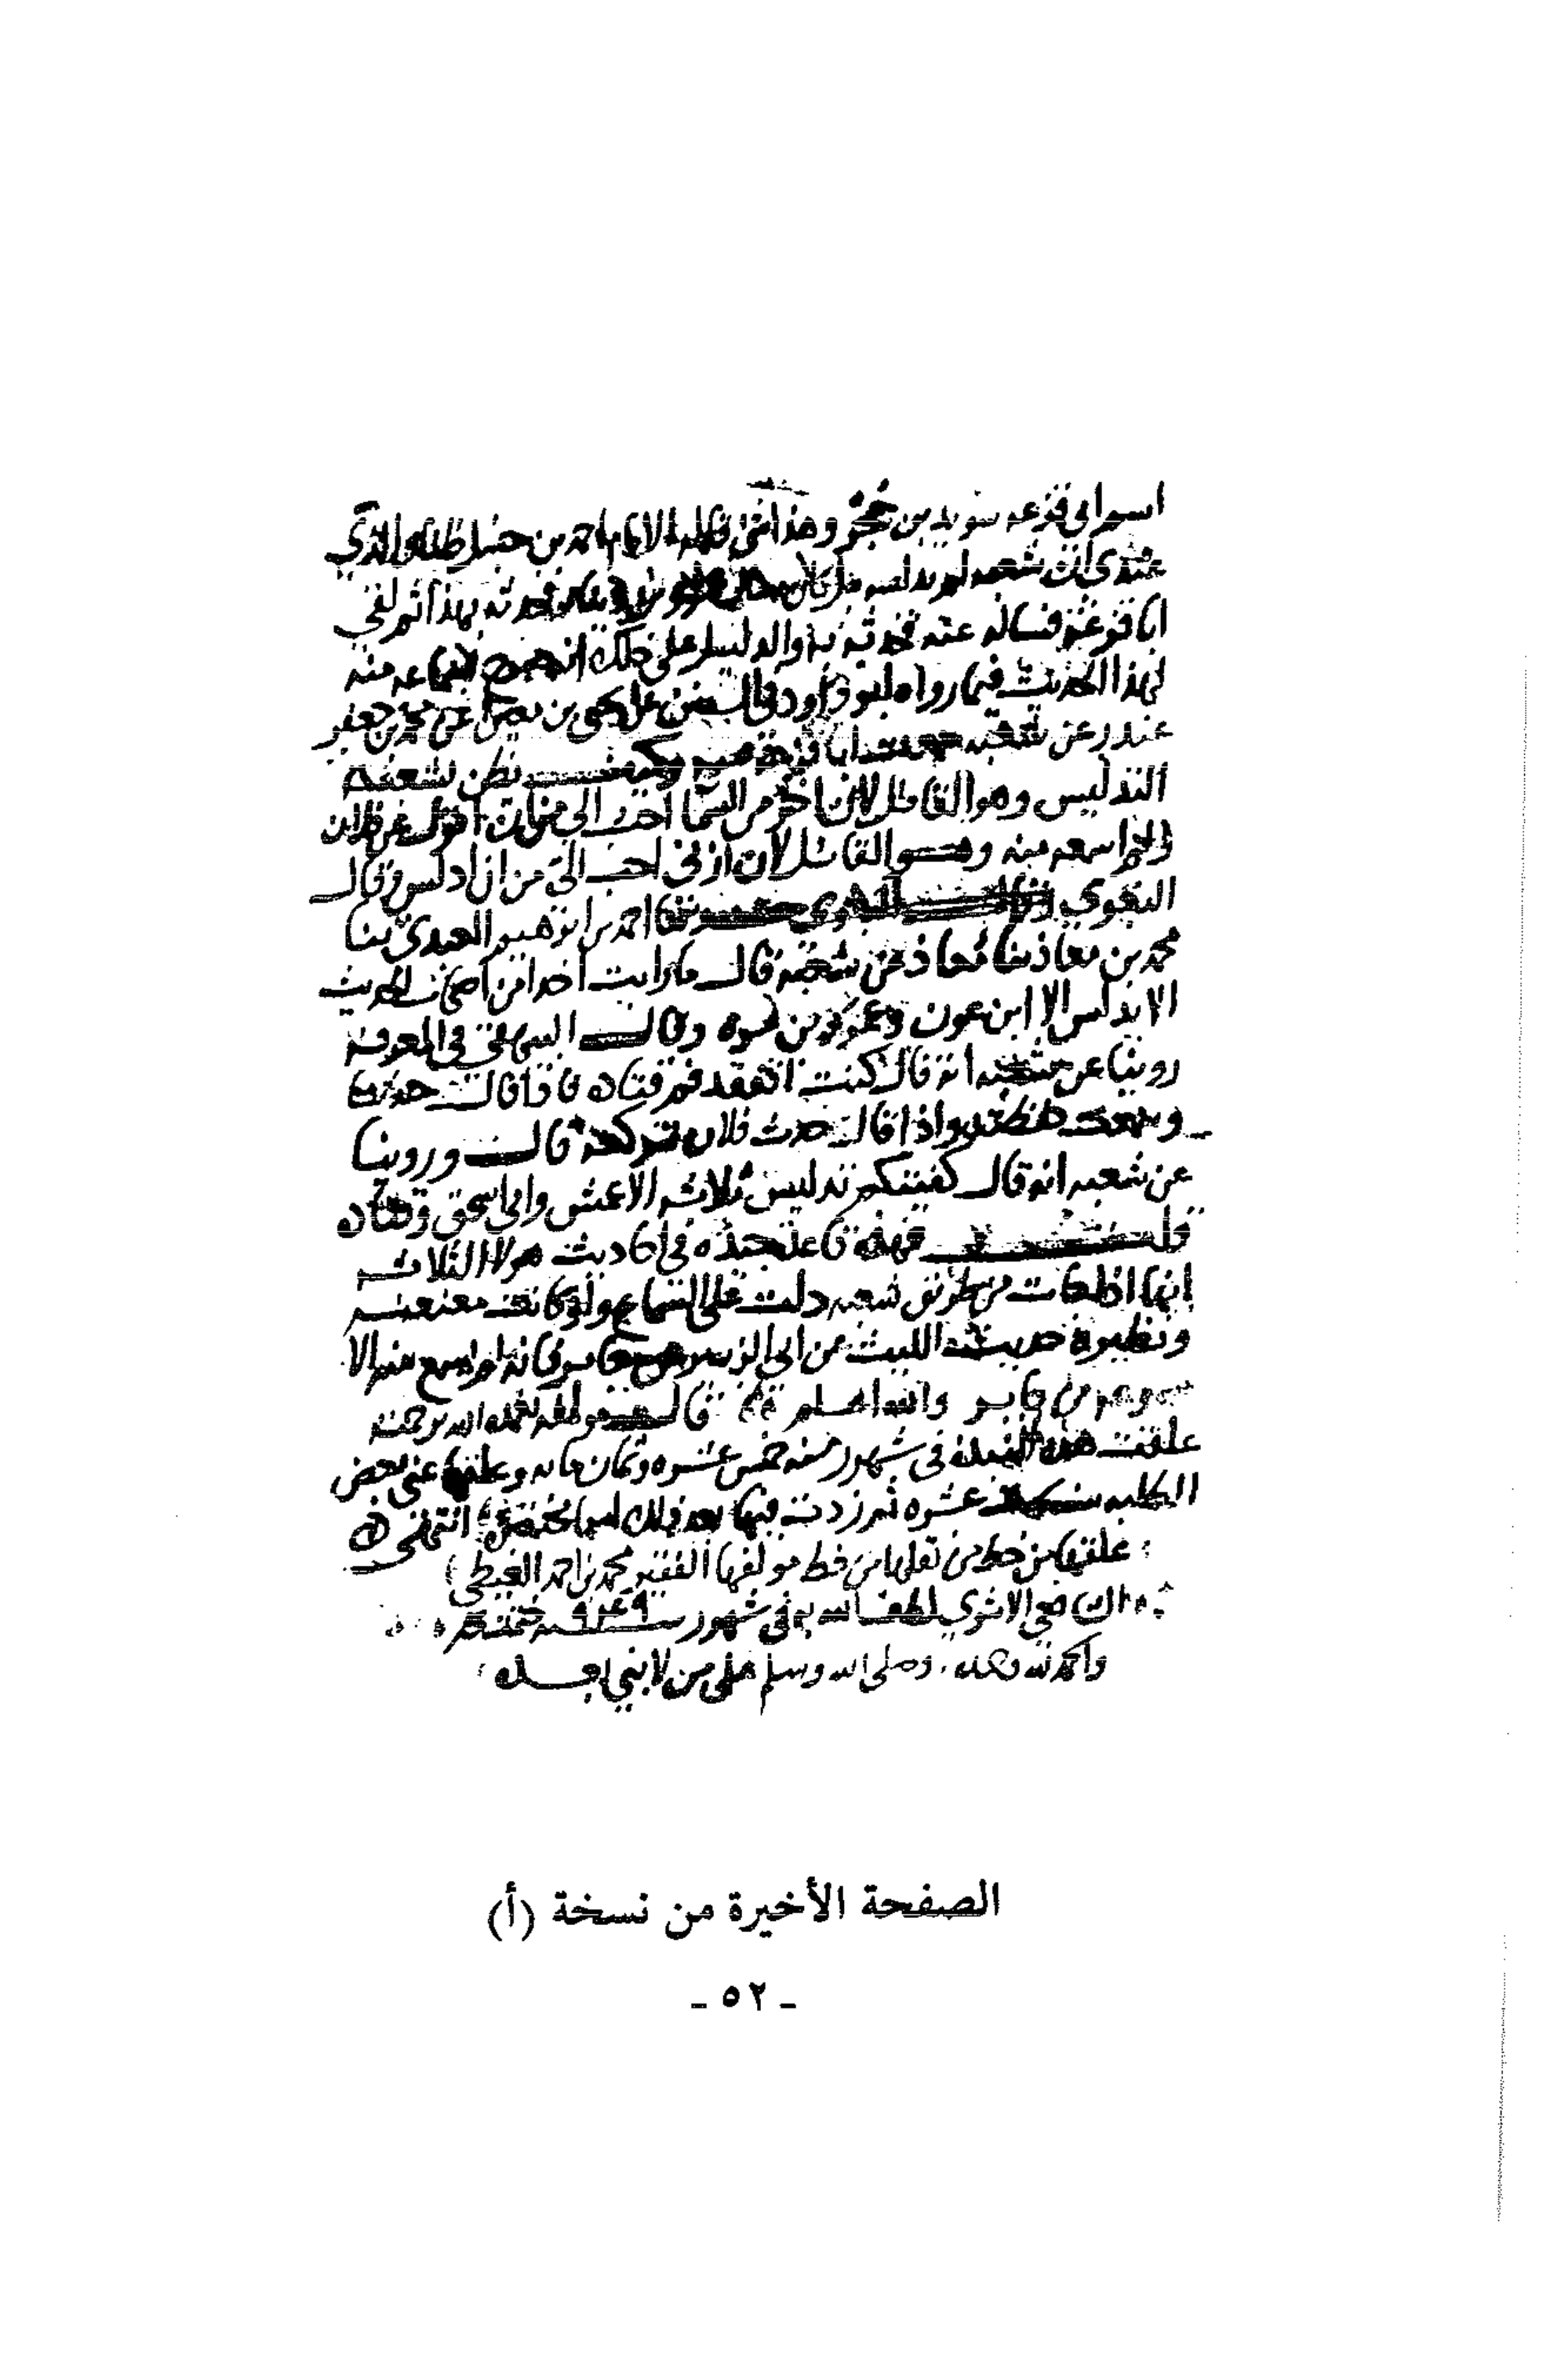 اسم ابي قزعه سويد بن حجر وهذا الامام احمد بن حنبل والذي
عندي ان شعبه لم يدلسه بهذا ثم لقي
ابا قزعة فساله عنه فحدثه به والدليل على ذلك انه سماعه منه
لهذا الحديث فيما رواه ابو داود في السنن عن يحيى بن معين عن محمد بن جعفر
غندر عن شعبه سمعت ابا قزعه وكيف نظن بشعبه
التدليس وهو القائل لان اخر من السما احب الي من ان اقول عن فلان
ولم اسمعه منه وهو القائل لان ازني احب الي من ان ادلس وقال
البغوي ثنا احمد بن ابرهيم العبدي ثنا
محمد بن معاذ ثنا معاذ عن شعبه قال ما رايت احدا من اصحاب الحديث
الا يدلس الا ابن عون وعمرو بن مره وقال البيهقي في المعرفه
روينا عن شعبه انه قال كنت اتفقد فم قتاده فاذا قال حدثنا
وسمعت حفظته واذا قال حدث فلان تركته قال وروينا
عن شعبه انه قال كفيتكم تدليس ثلاثه الاعمش وابي اسحق وقتاده
قلت فهذه قاعده جيده في احاديث هولا الثلاثه
انها اذا جات من طريق شعبه دلت على السماع ولو كانت معنعنه
ونظيره حديث الليث عن ابي الزبير عن جابر فانه لم يسمع منه الا
من جابر والله اعلم قال مولفه تغمده الله برحمته
علقت هذه النبذه في شهور سنه خمس عشره وثمان مايه وعلقها عني بعض
الطلبه سنه عشره ثم زدت فيها بعد ذلك انتهى
علقتها من خط من نقلها من خط مولفها الفقير محمد بن احمد الغيطي
الاثري لطف الله به في شهور سنه ٩٤٩
والحمد لله وحده وصلى الله وسلم على من لا نبي بعده
الصفحة الأخيرة من نسخة (أ)
- ٥٢ -